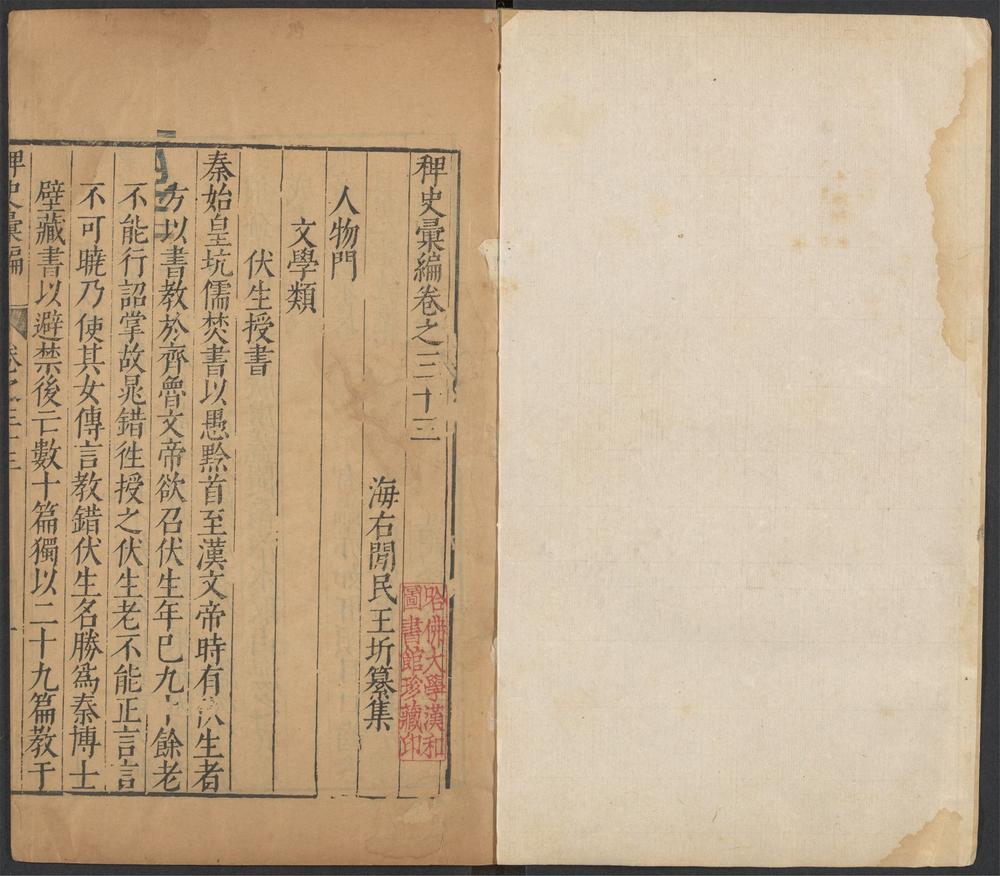 稗史彙編卷之三十三
海右閒民王圻纂集
哈佛大學漢和
圖書館珍藏印
人物門
文學類
伏生授書
秦始皇坑儒焚書以愚黔首至漢文帝時有伏生者
方以書教於齊魯文帝欲召伏生年巳九十餘老
不能行詔掌故晁錯徃授之伏生老不能正言言
不可曉乃使其女傳言教錯伏生名勝爲秦博士
壁藏書以避禁後亡數十篇獨以二十九篇教于
稗史彙編 卷之三十三 一